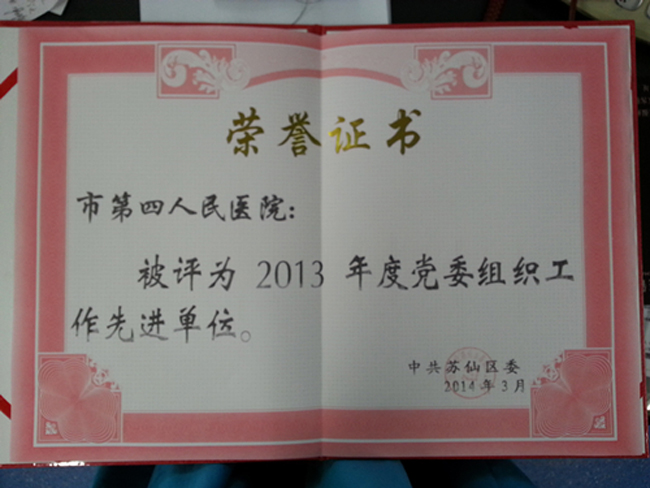 荣誉证书
市第四人民医院：
被评为 2013 年度党委组织工
作先进单位。
中共苏仙区委
2014年3月